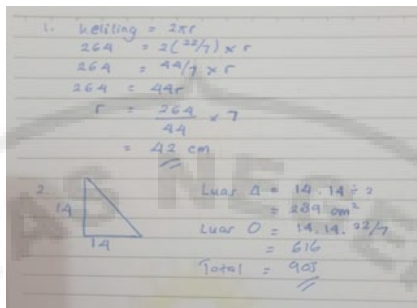 1. Keliling = 2πr
264 = 2(22/7) x r
264 = 44/7 x r
264 = 44r
r = 264/44 x 7
= 42 cm
2.
14
14
Luas Δ = 14 . 14 ÷ 2
= 289 cm²
Luas O = 14 . 14 . 22/7
= 616
Total = 905
AS NEGE